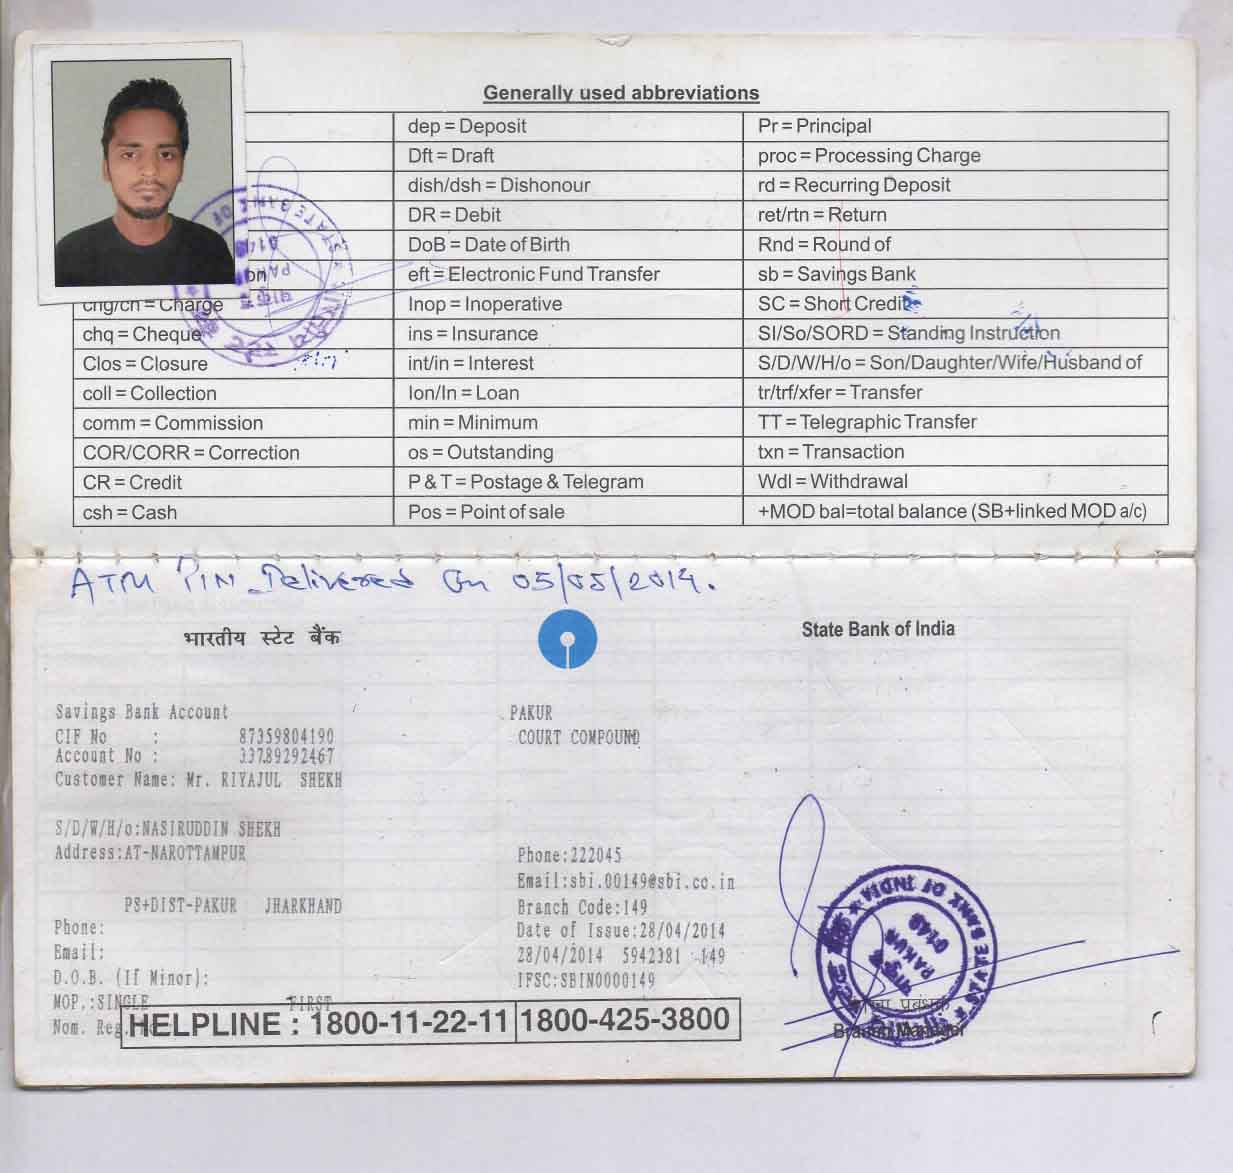 Generally used abbreviations
dep = Deposit
Pr = Principal
Dft = Draft
proc = Processing Charge
dish/dsh = Dishonour
rd = Recurring Deposit
DR = Debit
ret/rtn = Return
DoB = Date of Birth
Rnd = Round of
eft = Electronic Fund Transfer
sb = Savings Bank
chg/ch = Charge
Inop = Inoperative
SC = Short Credit
chq = Cheque
ins = Insurance
SI/So/SORD = Standing Instruction
Clos = Closure
int/in = Interest
S/D/W/H/o = Son/Daughter/Wife/Husband of
coll = Collection
lon/ln = Loan
tr/trf/xfer = Transfer
comm = Commission
min = Minimum
TT = Telegraphic Transfer
COR/CORR = Correction
os = Outstanding
txn = Transaction
CR = Credit
P & T = Postage & Telegram
Wdl = Withdrawal
csh = Cash
Pos = Point of sale
+MOD bal=total balance (SB+linked MOD a/c)
ATM PIN Delivered on 05/05/2014.
भारतीय स्टेट बैंक
State Bank of India
Savings Bank Account
PAKUR
CIF No : 87359804190
COURT COMPOUND
Account No : 33789292467
Customer Name: Mr. RIYAJUL SHEKH
S/D/W/H/o:NASIRUDDIN SHEKH
Address:AT-NAROTTAMPUR
Phone:222045
Email:sbi.00149@sbi.co.in
PS+DIST-PAKUR JHARKHAND
Branch Code:149
Phone:
Date of Issue:28/04/2014
Email:
28/04/2014 5942381 149
D.O.B. (If Minor):
IFSC:SBIN0000149
MOP.:SINGLE FIRST
Nom. Reg.
HELPLINE : 1800-11-22-11 1800-425-3800
STATE BANK OF INDIA
पाकुड़
PAKUR
0149
Branch Manager